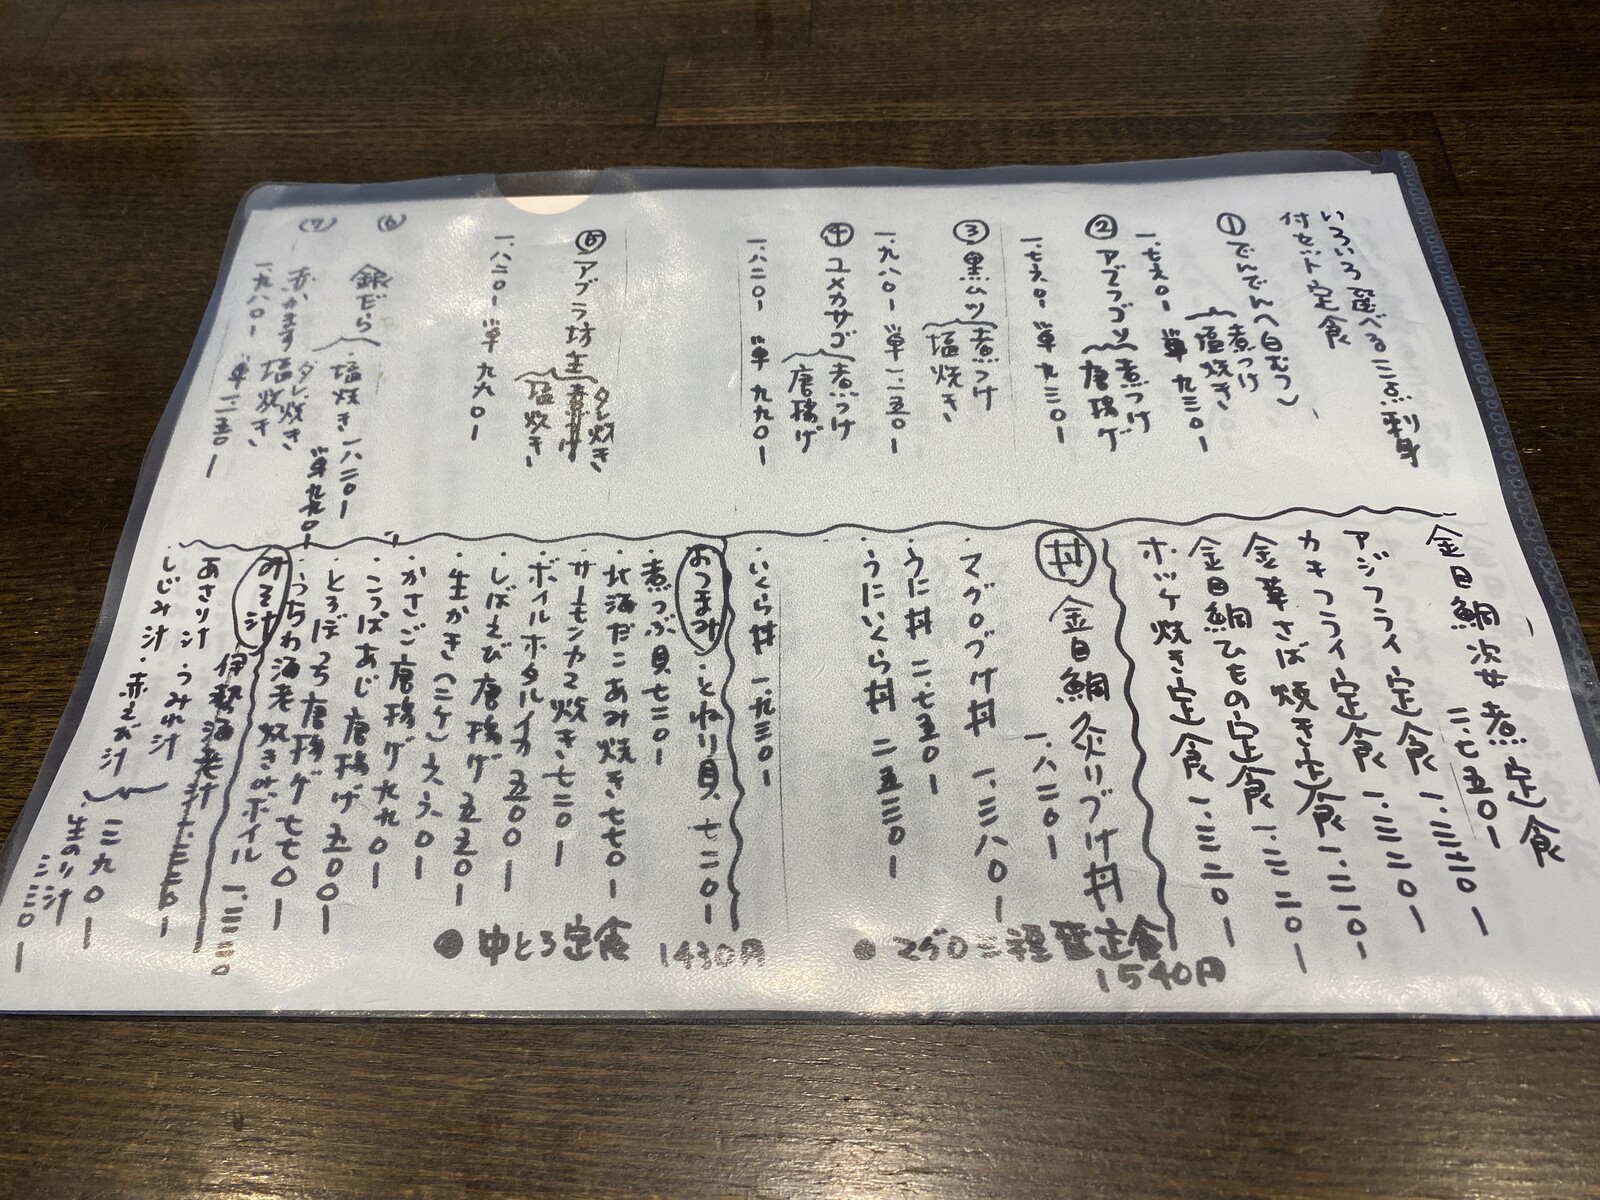 いろいろ選べる三点刺身
付セット定食
① でんでん(白むつ)
煮つけ
塩焼き
一.七六〇ー 単 九三〇ー
② アブラゴソ
煮つけ
唐揚ゲ
一.七六〇ー 単 九三〇ー
③ 黒ムツ
煮つけ
塩焼き
一.九八〇ー 単 一.一五〇ー
④ ユメカサゴ
煮つけ
唐揚げ
一.八二〇ー 単 九九〇ー
⑤ アブラ坊主
タレ焼き
塩焼き
一.八二〇ー 単 九九〇ー
(6) 銀だら
塩焼き 一.八二〇ー
タレ焼き 単 九九〇ー
(7) 赤かます 塩焼き
一.九八〇ー 単 一.一五〇ー
金目鯛姿煮定食
二.七五〇ー
アジフライ定食 一.三二〇ー
カキフライ定食 一.三二〇ー
金華さば焼き定食 一.二一〇ー
金目鯛ひもの定食 一.三二〇ー
ホッケ焼き定食 一.三二〇ー
丼 金目鯛炙りづけ丼
一.八二〇ー
・マグロづけ丼 一.三八〇ー
・うに丼 二.七五〇ー
・うにいくら丼 二.五三〇ー
・いくら丼 一.九三〇ー
おつまみ ・とねり貝 七二〇ー
・煮つぶ貝 七二〇ー
・北海だこあみ焼き 七七〇ー
・サーモンカマ焼き 七二〇ー
・ボイルホタルイカ 五〇〇ー
・しばえび唐揚ゲ 五〇〇ー
・生かき(二ケ) 六六〇ー
・かさご唐揚ゲ 九九〇ー
・こつぱあじ唐揚げ
・とろぼっち唐揚ゲ
・うちわ海老焼きorボイル 一.三二〇
みそ汁 伊勢海老汁
・あさり汁 ・つみれ汁
・しじみ汁 ・赤えび汁
三九〇ー
・生のり汁
三三〇ー
● マグロ二種盛定食
1540円
● 中とろ定食 1430円